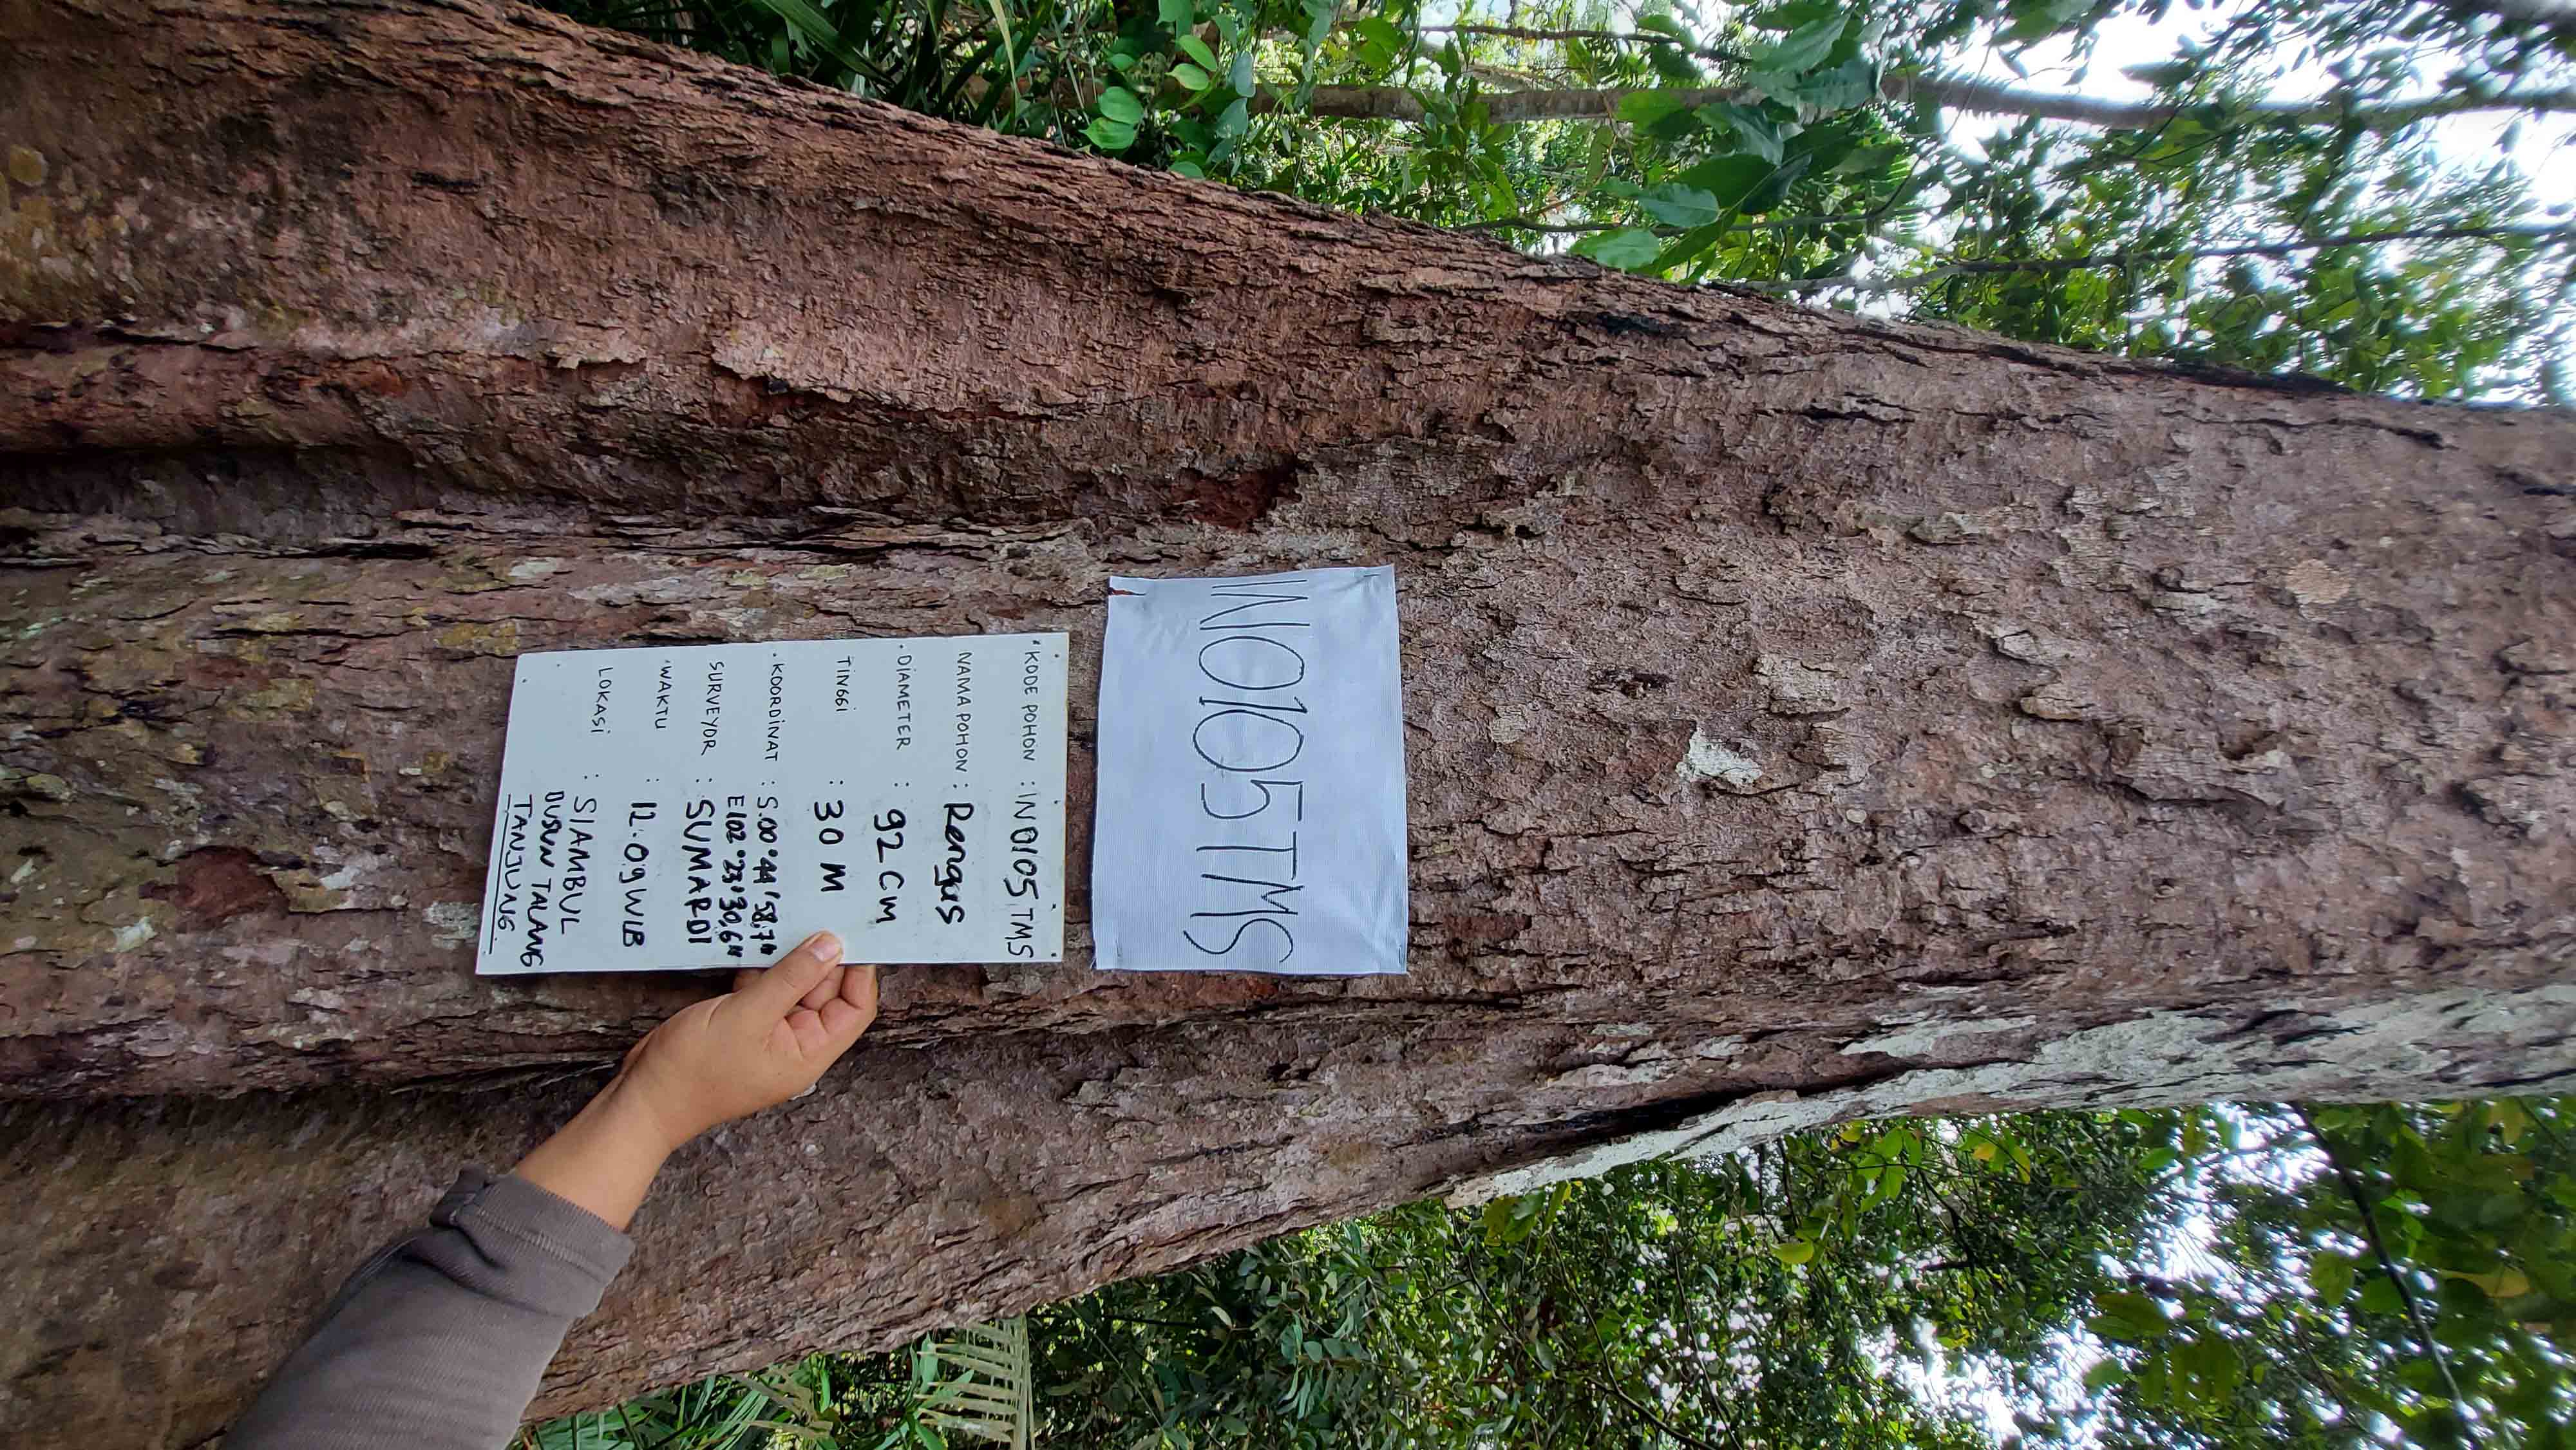 IN0105TMS
KODE POHON : IN0105 TMS
NAMA POHON : Rengas
DIAMETER : 92 CM
TINGGI : 30 M
KOORDINAT : S.00°44'58,7"
E102°23'30,6"
SURVEYOR : SUMARDI
WAKTU : 12.09 WIB
LOKASI : SIAMBUL
DUSUN TALANG
TANJUNG.